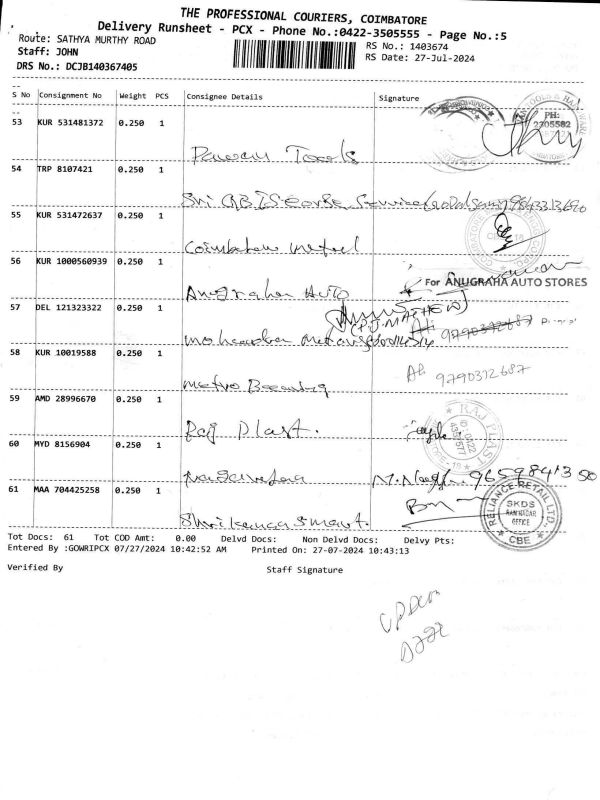 THE PROFESSIONAL COURIERS, COIMBATORE
Delivery Runsheet - PCX - Phone No.:0422-3505555 - Page No.:5
Route: SATHYA MURTHY ROAD
RS No.: 1403674
Staff: JOHN
RS Date: 27-Jul-2024
DRS No.: DCJB140367405
S No Consignment No Weight PCS Consignee Details Signature
53 KUR 531481372 0.250 1
PH:
2205582
Pawan Tools
54 TRP 8107421 0.250 1
Sri GB George Service 9843313690
55 KUR 531472637 0.250 1
Coimbatore metal
56 KUR 1000560939 0.250 1
For ANUGRAHA AUTO STORES
Anugraha Auto
57 DEL 121323322 0.250 1
MATHEW
9790372687
58 KUR 10019588 0.250 1
9790372687
Metro Bearing
59 AMD 28996670 0.250 1
RAJ PLAST
Raj Plast.
60 MYD 8156904 0.250 1
9659841350
61 MAA 704425258 0.250 1
RELIANCE RETAIL LTD.
SKDS
RAM NAGAR
OFFICE
CBE
Shri kumaran smart.
Tot Docs: 61 Tot COD Amt: 0.00 Delvd Docs: Non Delvd Docs: Delvy Pts:
Entered By :GOWRIPCX 07/27/2024 10:42:52 AM Printed On: 27-07-2024 10:43:13
Verified By Staff Signature